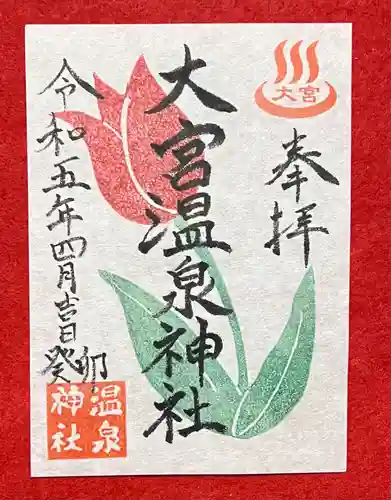 大宮
奉拝
大宮温泉神社
令和五年四月吉日
癸卯
温泉
神社